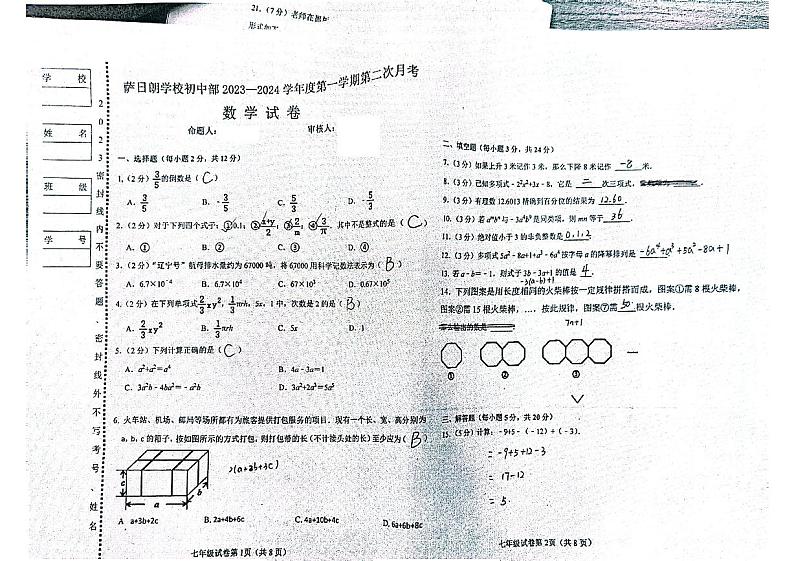 21.（7分）老师在黑
学 校
姓 名
班 级
学 号
2023密封线内不要答题、密封线外不写考号、姓名
萨日朗学校初中部 2023—2024 学年度第一学期第二次月考
数 学 试 卷
命题人： 审核人：
一、选择题（每小题 2 分，共 12 分）
1.（2分）3/5的倒数是（ C ）
A. 3/5 B. -3/5 C. 5/3 D. -5/3
2.（2分）对于下列四个式子：①0.1；②(x+y)/2；③2/m；④3/π. 其中不是整式的是（ C ）
A. ① B. ② C. ③ D. ④
3.（2分）“辽宁号”航母排水量约为 67000 吨，将 67000 用科学记数法表示为（ B ）
A. 6.7×10⁻⁴ B. 6.7×10⁴ C. 67×10³ D. 0.67×10⁵
4.（2分）在下列单项式2/3xy²，1/3πrh，5x，1 中，次数是 2 的是（ B ）
A. 2/3xy² B. 1/3πrh C. 5x D. 1
5.（2分）下列计算正确的是（ C ）
A. a²+a²=a⁴ B. 4a﹣3a=1
C. 3a²b﹣4ba²=﹣a²b D. 3a²+2a³=5a⁵
6. 火车站、机场、邮局等场所都有为旅客提供打包服务的项目. 现有一个长、宽、高分别为
a, b, c 的箱子，按如图所示的方式打包，则打包带的长（不计接头处的长）至少应为（ B ）
c a b
A a+3b+2c B. 2a+4b+6c C. 4a+10b+4c D. 6a+6b+8c
七年级试卷第 1页（共 8 页）
二、填空题（每小题 3 分，共 24 分）
7.（3分）如果上升 3 米记作 3 米，那么下降 8 米记作 -8 米.
8.（3分）已知多项式﹣2²x²+3x﹣8，它是 二 次三项式，
9.（3分）有理数 12.6013 精确到百分位的结果为 12.60 .
10.（3分）若 aᵐb⁶与﹣3a⁶bⁿ是同类项，则 mn 等于 36 .
11.（3分）绝对值小于 3 的非负整数是 0,1,2 .
12.（3分）多项式 5a²﹣8a+1+a³﹣6a⁴按字母 a 的降幂排列是 -6a⁴+a³+5a²-8a+1
13. 若 a﹣b=﹣1，则式子 3b﹣3a+1 的值是 4 .
-3(a-b)+1
14. 下列图案是用长度相同的火柴棒按一定规律拼搭而成，图案①需 8 根火柴棒，
图案②需 15 根火柴棒，…. 按此规律，图案⑦需 50 根火柴棒.
7n+1
① ② ③
三、解答题（每小题 5 分，共 20 分）
15.（5分）计算：﹣9+5﹣（﹣12）+（﹣3）.
= -9+5+12-3
= 17-12
= 5.
七年级试卷第 2页（共 8 页）